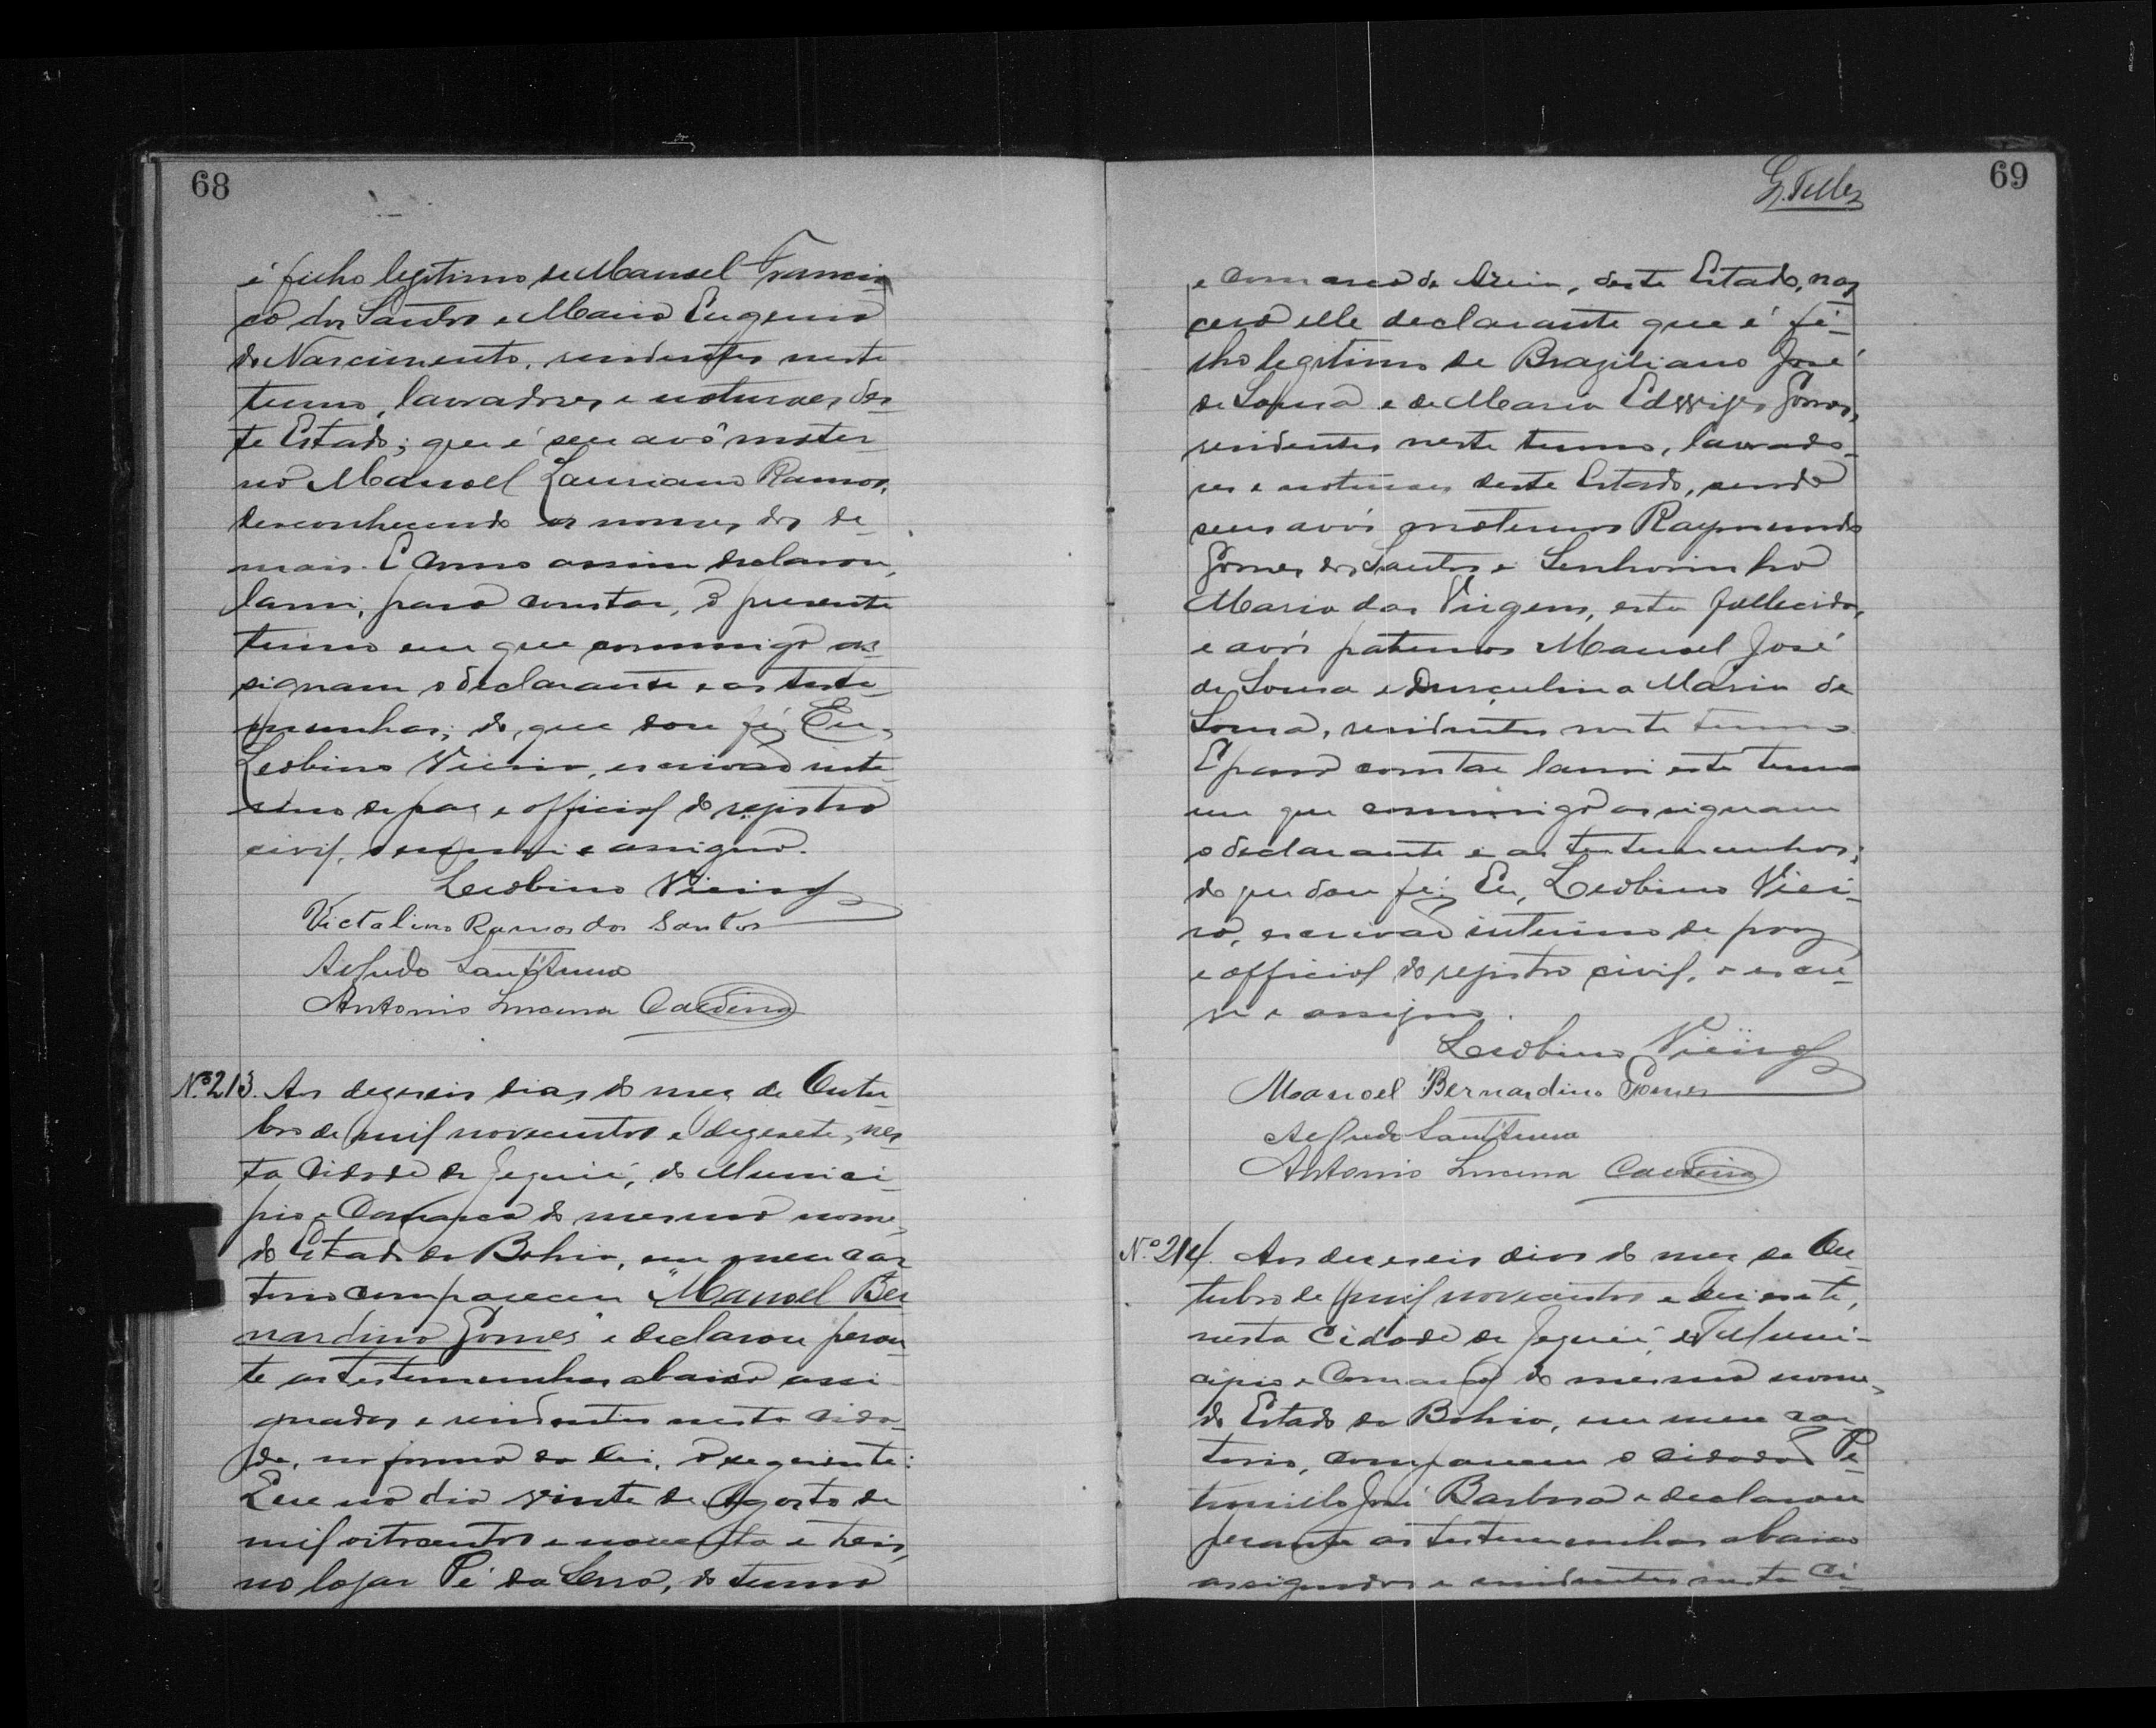 68
é filho legitimo de Manoel Francis-
co dos Santos e Maria Eugenia
do Nascimento, residentes neste
termo, lavradores e naturaes des-
te Estado; que é seu avô mater-
no Manoel Lauriano Ramos,
desconhecendo os nomes dos de-
mais. E como assim declarou,
lavrei, para constar, o presente
termo em que commigo as-
signam o declarante e as teste-
munhas; do que dou fé. Eu,
Leobino Vieira, escrivão inte-
rino de paz e official do registro
civil, o escrevi e assigno.
Leobino Vieira
Victalino Ramos dos Santos
Alfredo Sant'Anna
Antonio Lucena Caldeira
Nº 213. Aos dezeseis dias do mez de Outu-
bro de mil novecentos e dezesete, nes-
ta Cidade de Jequié, do Munici-
pio e Comarca do mesmo nome,
do Estado da Bahia, em meu car-
torio compareceu "Manoel Ber-
nardino Gomes" e declarou peran-
te as testemunhas abaixo assi-
gnadas e residentes nesta cida-
de, na forma da lei, o seguinte:
Que no dia vinte de Agosto de
mil oitocentos e noventa e tres,
no logar Pé da Serra, do termo
69
G. Telles
e comarca de Areia, deste Estado, nas-
ceu elle declarante que é fi-
lho legitimo de Braziliano José
de Sousa e de Maria Edwiges Gomes,
residentes neste termo, lavrado-
res e naturaes deste Estado, sendo
seus avós maternos Raymundo
Gomes dos Santos e Senhorinha
Maria das Virgens, esta fallecida,
e avós paternos Manoel José
de Sousa e Durculina Maria de
Sousa, residentes neste termo.
E para constar lavrei este termo
em que commigo assignam
o declarante e as testemunhas;
do que dou fé. Eu, Leobino Viei-
ra, escrivão interino de paz
e official do registro civil, o escre-
vi e assigno.
Leobino Vieira
Manoel Bernardino Gomes
Alfredo Sant'Anna
Antonio Lucena Caldeira
Nº 214. Aos dezeseis dias do mez de Ou-
tubro de mil novecentos e dezesete,
nesta Cidade de Jequié, do Muni-
cipio e Comarca do mesmo nome,
do Estado da Bahia, em meu car-
torio, compareceu o cidadão Pe-
tronillo José Barbosa e declarou
perante as testemunhas abaixo
assignadas e residentes nesta Ci-